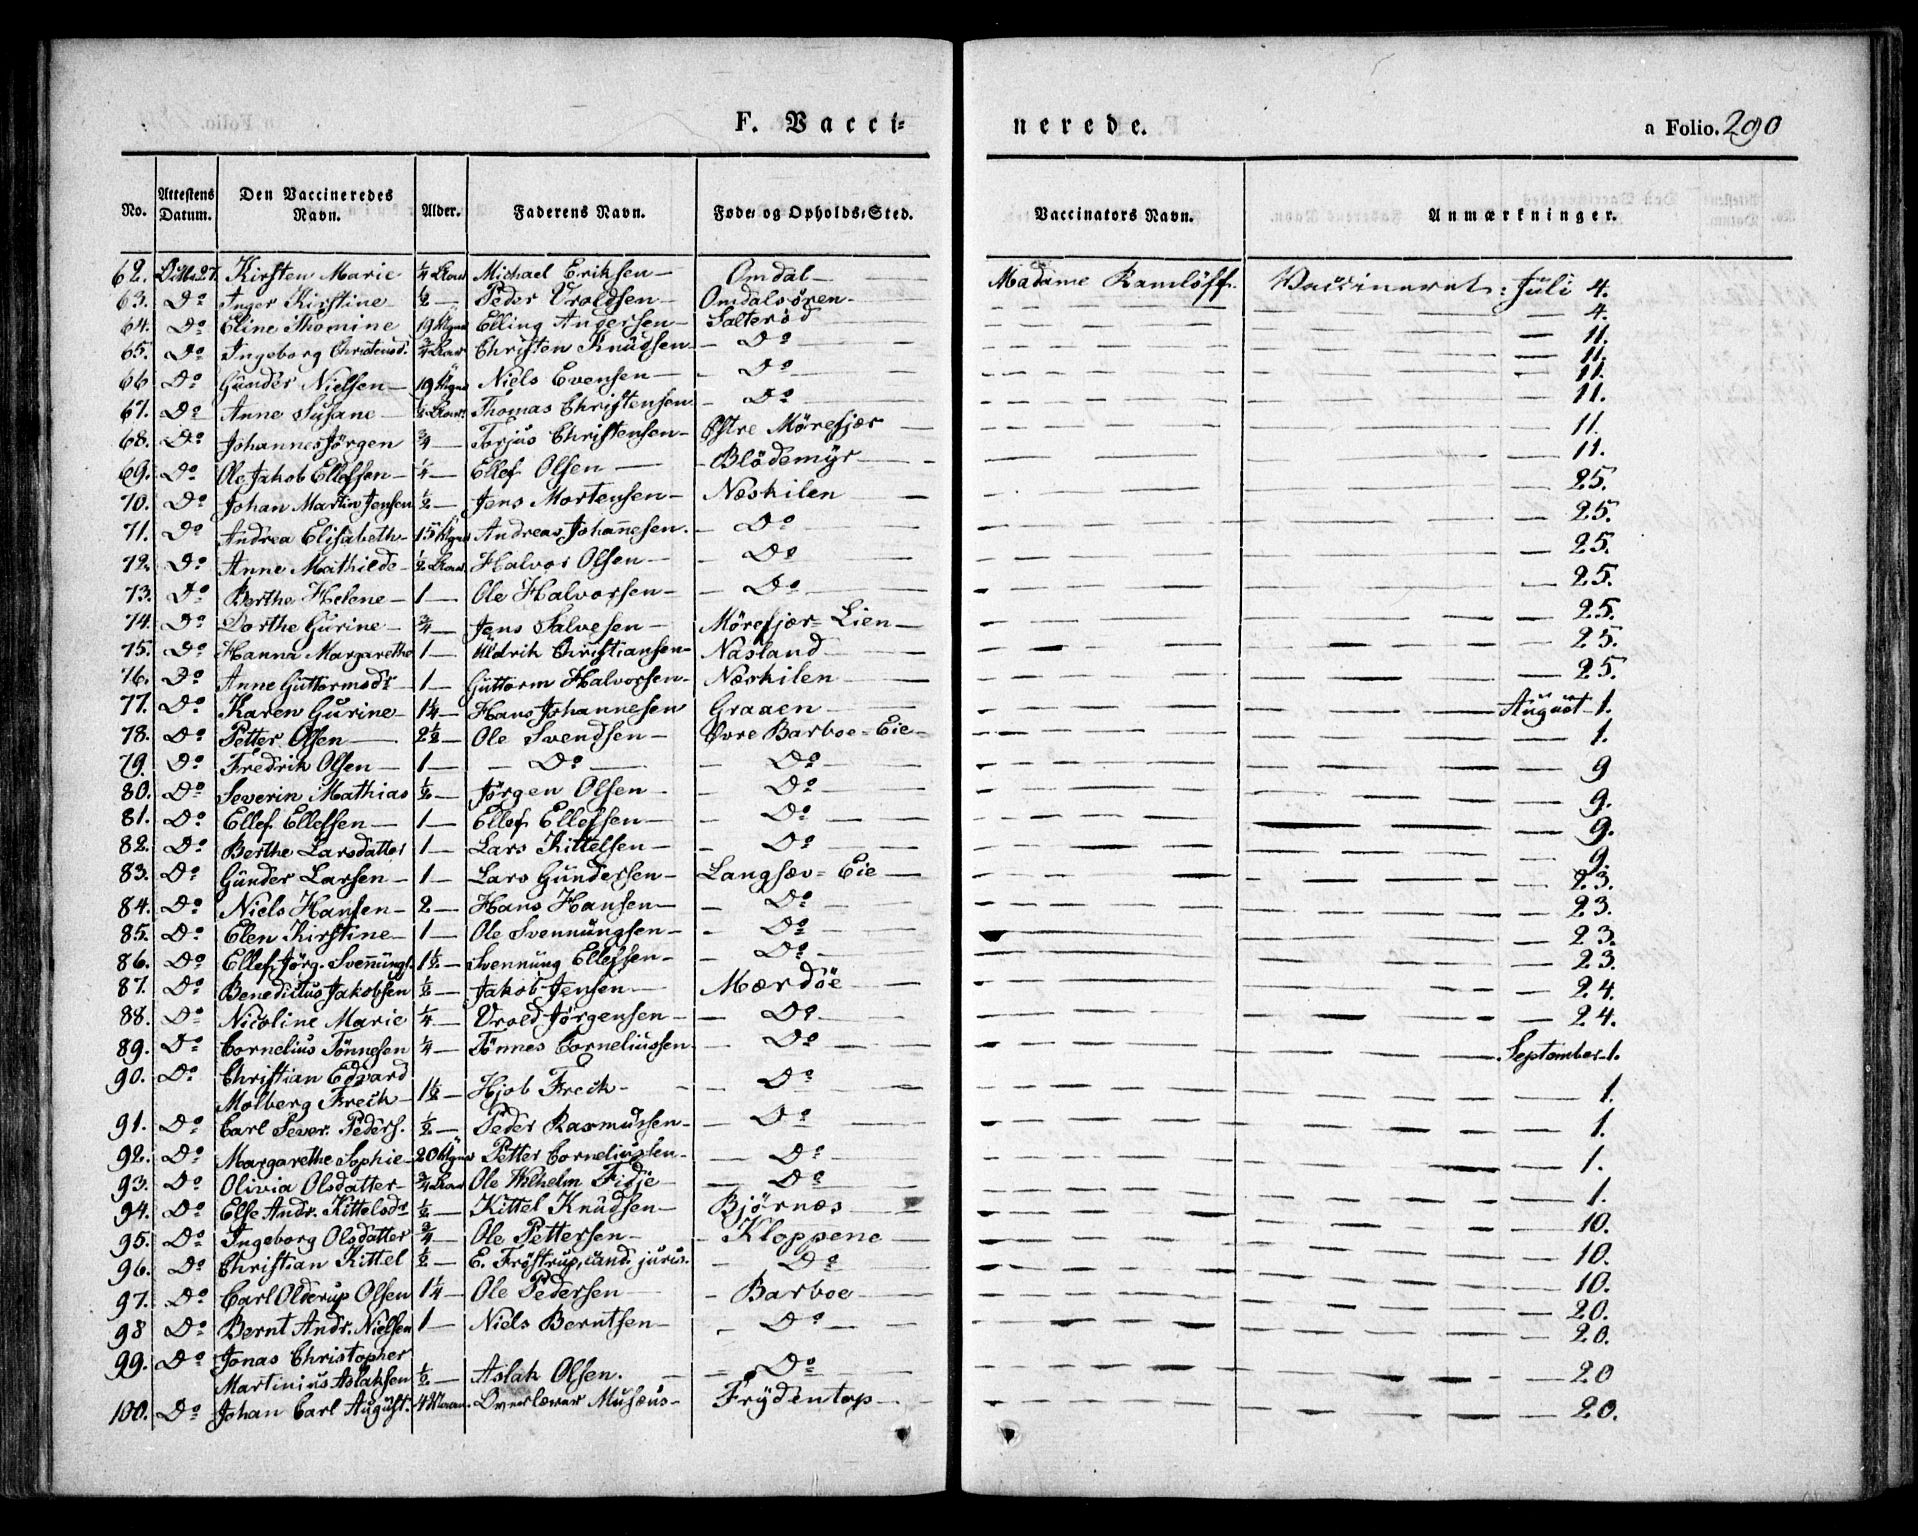 F. Vacci= nerede. a Folio. 290
No. Attestens Datum. Den Vaccineredes Navn. Alder. Faderens Navn. Føde= og Opholds=Sted. Vaccinators Navn. Anmærkninger.
62. 27. Kirsten Marie ¼ Michael Eriksen — Omdal — Madame Ramlöff. Vaccineret: Juli 4.
63. Do Inger Kirstine ½ — Peder Vroldsen — Omdalsören — 4.
64. Do Eline Thomine 19 Elling Andersen — Salteröd — 11.
65. Do Ingeborg Christensd. ¾ Christen Knudsen — Do — 11.
66 Do Gunder Nielsen — 19 Niels Evensen — Do — 11.
67. Do Anne Susane — Thomas Christensen — Do — 11.
68. Do Johannes Jörgen ¾ — Torjus Christensen — Østre Mörefjær — 11.
69. Do Ole Jakob Ellefsen — ¼ — Ellef Olsen — Blödemyr — 11.
70. Do Johan Martin Jensen ½ — Jens Mortensen — Næskilen — 25.
71. Do Andrea Elisabeth — 15 Andreas Johannesen. — Do — 25.
72. Do Anne Mathilde — ½ Halvor Olsen — Do — 25.
73. Do Berthe Helene — 1 — Ole Halvorsen — Do — 25.
74. Do Dorthe Gurine — ¾ — Jens Salvesen — Mörefjær=Lien — 25.
75. Do Hanna Margarethe 1 — Uldrik Christiansen — Næsland — 25.
76. Do Anne Guttormsdr 1 — Guttorm Halvorsen — Næskilen — 25.
77. Do Karen Gurine — 1¼ — Hans Johannesen Graaen — August 1.
78. Do Petter Olsen — 2½ — Ole Svendsen — Øvre Barboe=Eie — 1.
79. Do Fredrik Olsen — 1 — Do — Do — 9
80. Do Severin Mathias ½ — Jörgen Olsen — Do — 9.
81. Do Ellef Ellefsen — 1 — Ellef Ellefsen — Do — 9.
82. Do Berthe Larsdatter 1 — Lars Kittelsen — Do — 9.
83. Do Gunder Larsen — 1 — Lars Gundersen — Langsæv=Eie — 23.
84. Do Niels Hansen — 2 — Hans Hansen — Do — 23.
85. Do Elen Kirstine — 1 — Ole Svennungsen — Do — 23.
86. Do Ellef Jörg. Svennungs. 1½ — Svennung Ellefsen — Do — 23.
87. Do Benedictus Jakobsen ½ — Jakob Jensen — Mærdöe — 24.
88. Do Nicoline Marie ¼ — Vrold Jörgensen — Do — 24.
89. Do Cornelius Tönnesen ¼ — Tönnes Corneliussen — Do — September 1.
90. Do Christian Edvard
Molberg Freck — 1½ — Hjob Freck — Do — 1.
91. Do Carl Sever. Peders. ½ — Peder Rasmussen — Do — 1.
92. Do Margarethe Sophie — 20 Petter Corneliussen — Do — 1.
93. Do Olivia Olsdatter ¾ Ole Wilhelm Fidje — Do — 1.
94. Do Else Andr. Kittelsdr ½ — Kittel Knudsen — Björnæs — 10.
95. Do Ingeborg Olsdatter ¾ — Ole Pettersen — Kloppene — 10.
96. Do Christian Kittel ½ — E. Fröstrup, cand. juris. — Do — 10.
97. Do Carl Olderup Olsen 1¼ — Ole Pedersen — Barboe — 20.
98 Do Bernt Andr. Nielsen 1 — Niels Berntsen — Do — 20.
99. Do Jonas Christopher
Martinius Aslaksen ½ — Aslak Olsen. — Do — 20
100. Do Johan Carl August. 4 Musæus — Frydentop — 20.